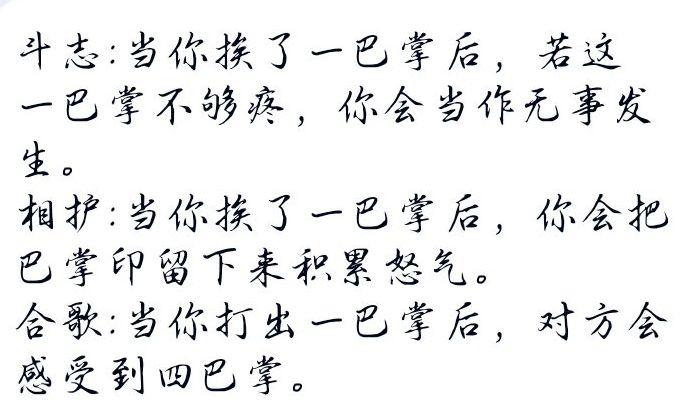 斗志:当你挨了一巴掌后，若这
一巴掌不够疼，你会当作无事发
生。
相护:当你挨了一巴掌后，你会把
巴掌印留下来积累怒气。
合歌:当你打出一巴掌后，对方会
感受到四巴掌。